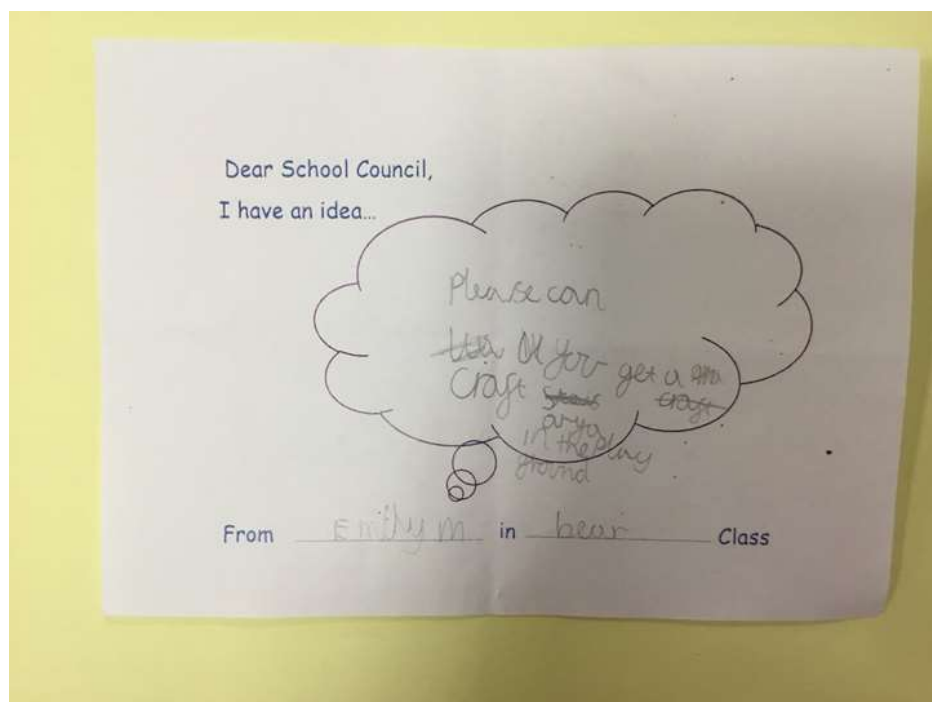 Dear School Council,
I have an idea...
Please can
you get a
Craft
in the play
ground
From Emily M in bear Class